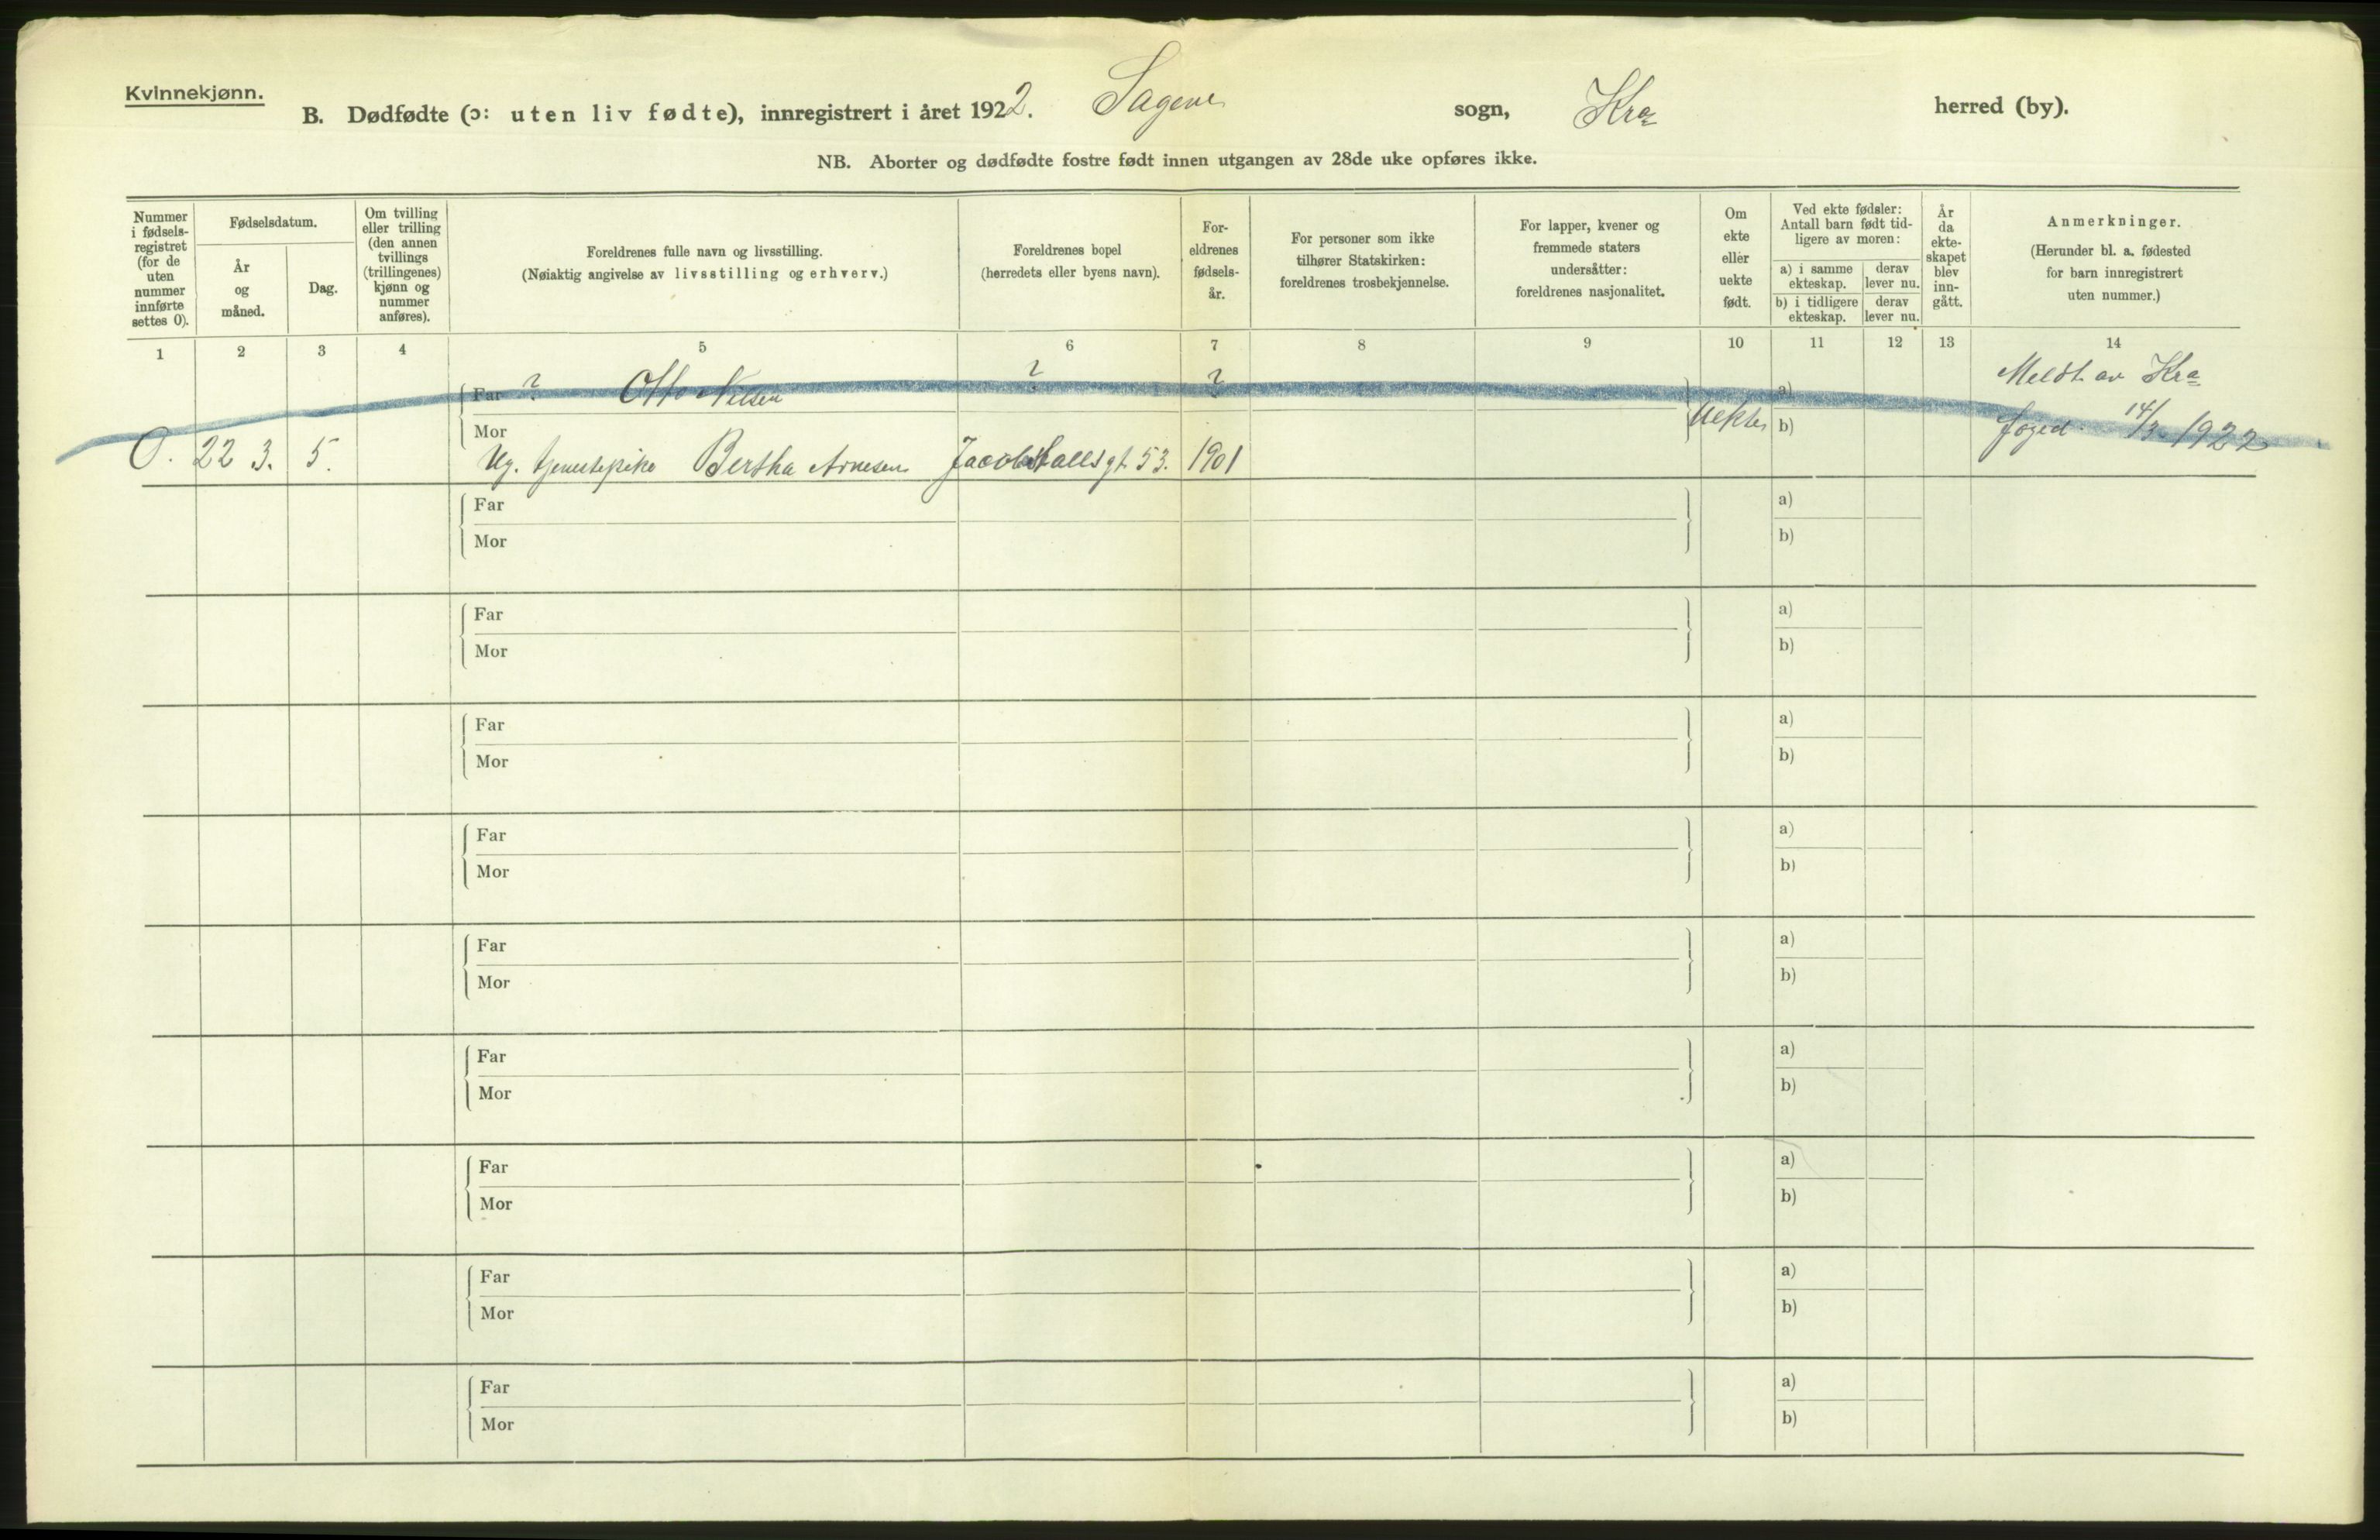 Kvinnekjønn.
B. Dødfødte (ɔ: uten liv fødte), innregistrert i året 1922. Sagene sogn, Kra herred (by).
NB. Aborter og dødfødte fostre født innen utgangen av 28de uke opføres ikke.
Nummer i fødsels-registret (for de uten nummer innførte settes 0).
Fødselsdatum.
År og måned.
Dag.
Om tvilling eller trilling (den annen tvillings (trillingenes) kjønn og nummer anføres).
Foreldrenes fulle navn og livsstilling.
(Nøiaktig angivelse av livsstilling og erhverv.)
Foreldrenes bopel
(herredets eller byens navn).
For-eldrenes fødsels-år.
For personer som ikke tilhører Statskirken: foreldrenes trosbekjennelse.
For lapper, kvener og fremmede staters undersåtter: foreldrenes nasjonalitet.
Om ekte eller uekte født.
Ved ekte fødsler: Antall barn født tid-ligere av moren:
a) i samme ekteskap.
derav lever nu.
b) i tidligere ekteskap.
derav lever nu.
År da ekte-skapet blev inn-gått.
Anmerkninger.
(Herunder bl. a. fødested for barn innregistrert uten nummer.)
1 2 3 4 5 6 7 8 9 10 11 12 13 14
Far ? Otto Nilsen ? ? a) Meldt av Kra
Mor Uekte b) foged. 14/3 1922
0. 22 3. 5. Ug. tjenestepike Bertha Arnesen Jacob Halls gt. 53. 1901
Far a)
Mor b)
Far a)
Mor b)
Far a)
Mor b)
Far a)
Mor b)
Far a)
Mor b)
Far a)
Mor b)
Far a)
Mor b)
Far a)
Mor b)
Far a)
Mor b)